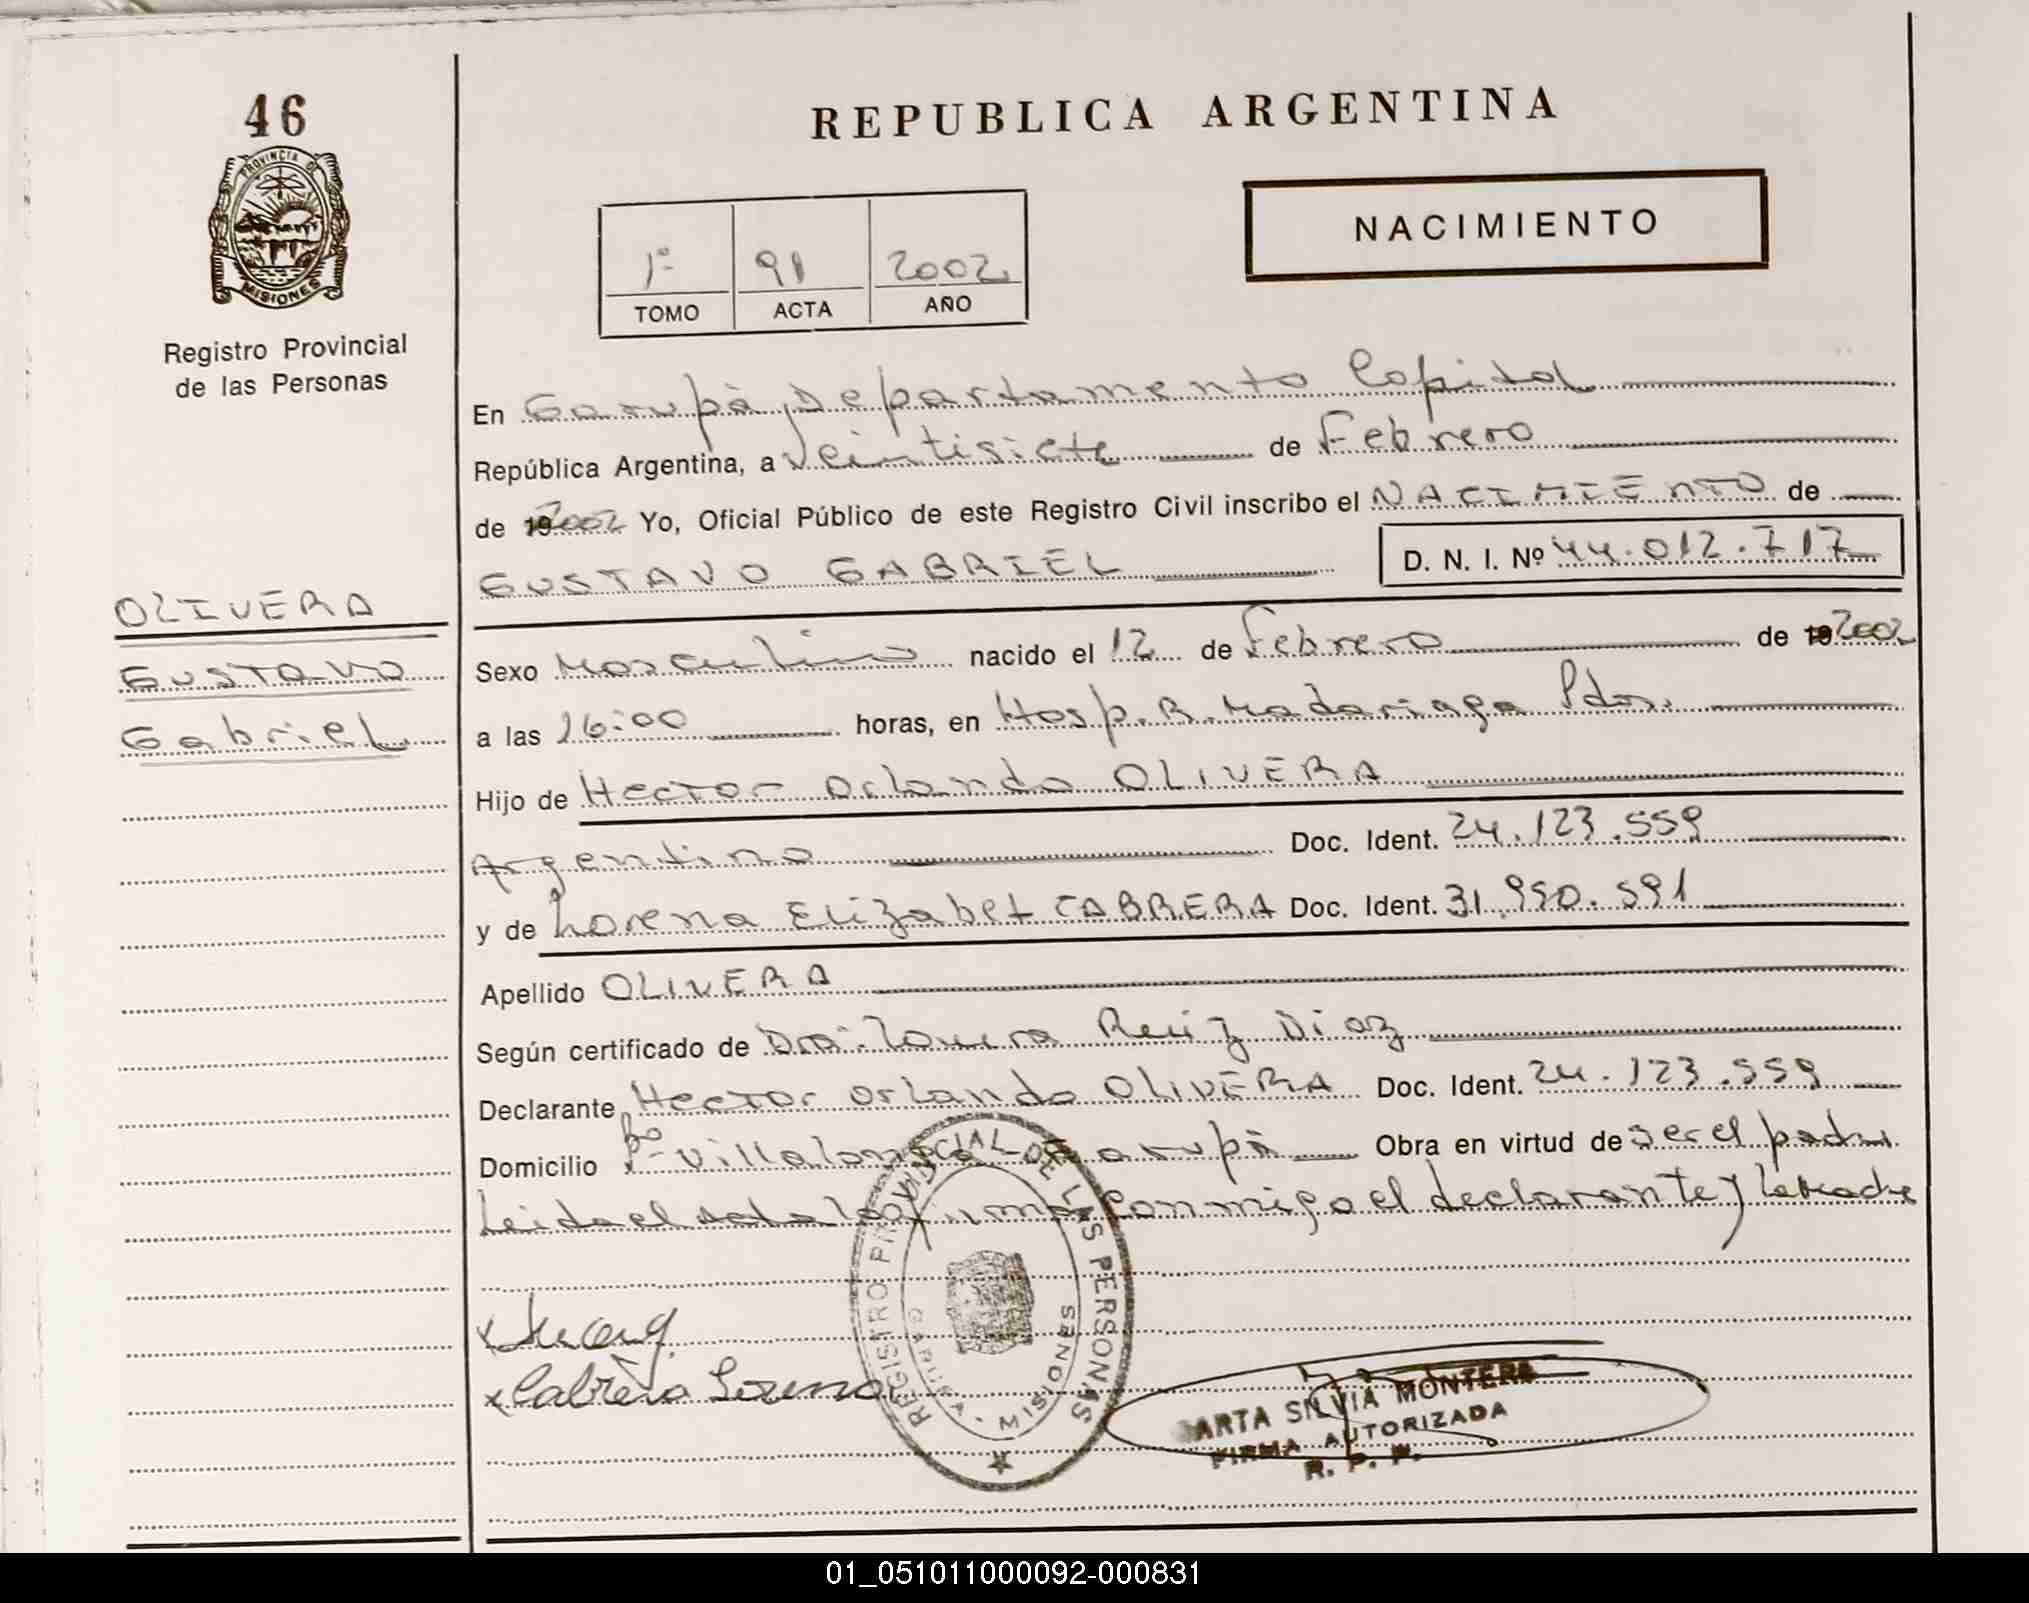 46
PROVINCIA DE
MISIONES
Registro Provincial
de las Personas
OLIVERA
GUSTAVO
Gabriel
REPUBLICA ARGENTINA
NACIMIENTO
1º 91 2002
TOMO ACTA AÑO
En Garupà, Departamento Capital
República Argentina, a veintisiete de Febrero
de 192002 Yo, Oficial Público de este Registro Civil inscribo el NACIMIENTO de
GUSTAVO GABRIEL D. N. I. Nº 44.012.717
Sexo Masculino nacido el 12 de Febrero de 192002
a las 16:00 horas, en Hosp. R. Madariaga Pdas.
Hijo de Hector Orlando OLIVERA
Argentino Doc. Ident. 24.123.559
y de Lorena Elizabet CABRERA Doc. Ident. 31.950.591
Apellido OLIVERA
Según certificado de Dra. Laura Ruiz Diaz
Declarante Hector Orlando OLIVERA Doc. Ident. 24.123.559
Domicilio Bº Villalonga Garupà Obra en virtud de ser el padre
Leida el acta la firma conmigo el declarante y la Madre
REGISTRO PROVINCIAL DE LAS PERSONAS
GARUPA - MISIONES
x
x Cabrera Lorena
MARTA SILVIA MONTERO
FIRMA AUTORIZADA
R. P. P.
01_051011000092-000831